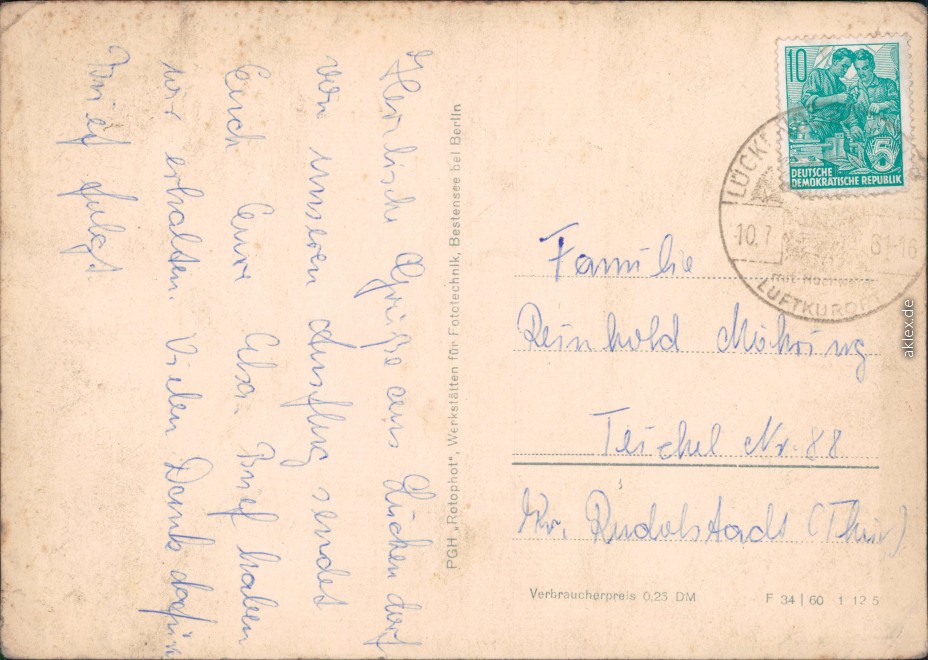 Herzliche Grüße aus Lückendorf
von unseren Ausflug sendet
Euch Eure Elsa. Brief haben
wir erhalten. Vielen Dank dafür
Brief folgt
PGH „Rotophot", Werkstätten für Fototechnik, Bestensee bei Berlin
10
5
DEUTSCHE
DEMOKRATISCHE REPUBLIK
10.7
16
LUFTKURORT
Familie
Reinhold Möhring
Teichel Nr. 88
Kr. Rudolstadt (Thür)
Verbraucherpreis 0,25 DM
F 34|60 1 12 5
aklex.de